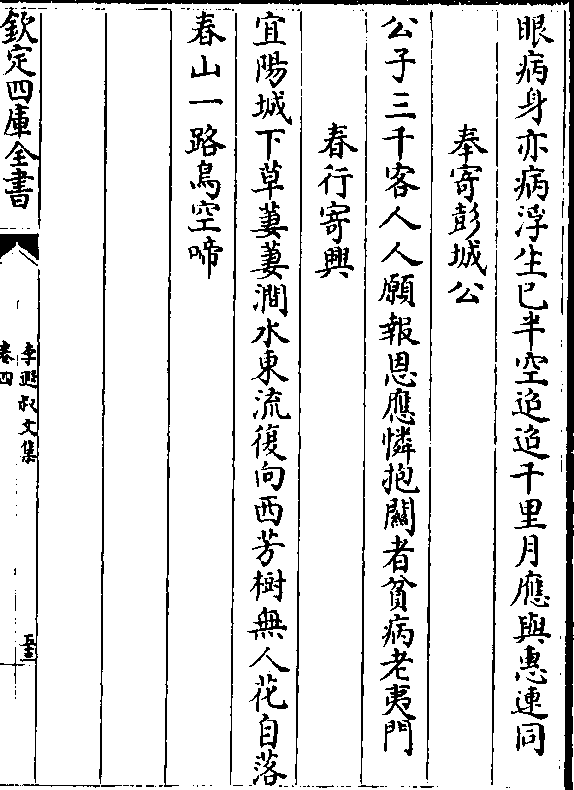 眼病身亦病浮生已半空迢迢千里月應與惠連同
奉寄彭城公
公子三千客人人願報恩應憐抱關者貧病老夷門
春行寄興
宜陽城下草萋萋澗水東流復向西芳樹無人花自落
春山一路鳥空啼
欽定四庫全書
李遐叔文集
卷四